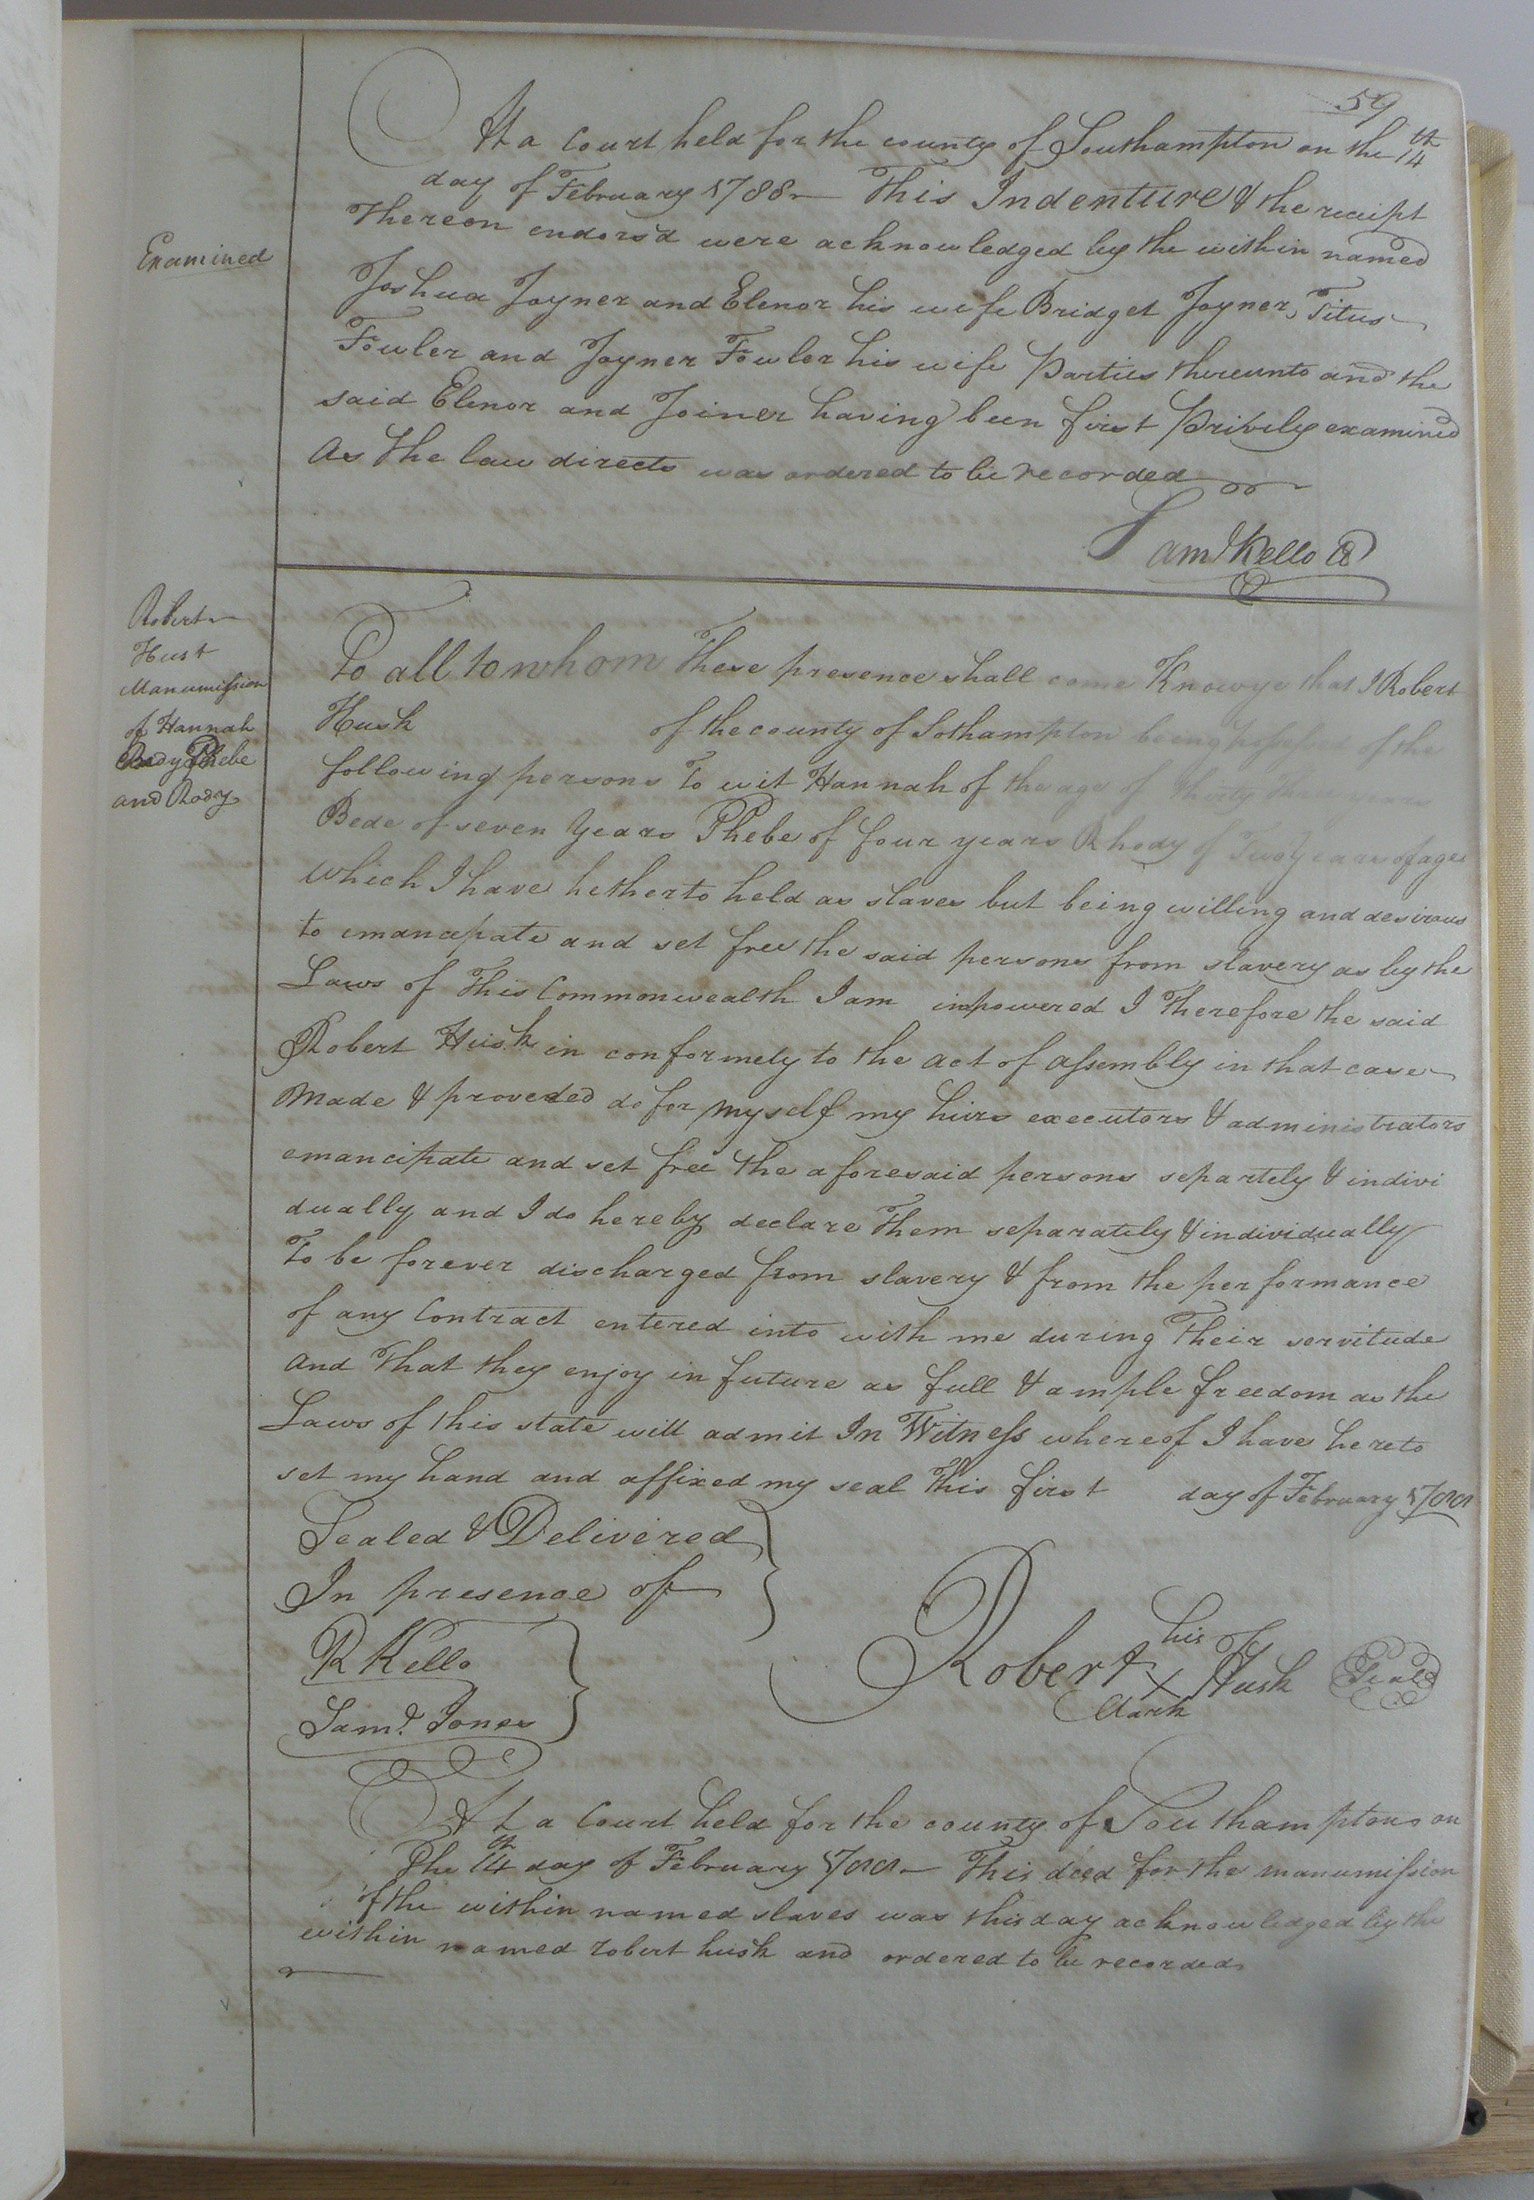 59
At a Court held for the county of Southampton on the 14th
day of February 1788 This Indenture & the receipt
Thereon endors'd were acknowledged by the within named
Examined
Joshua Joyner and Elenor his wife Bridget Joyner, Titus
Fowler and Joyner Fowler his wife Parties thereunto and the
said Elenor and Joiner having been first Privily examined
As the law directs was ordered to be recorded
Saml Kello
Robert
Hust
Manumission
of Hannah
Phebe
and Rody
To all to whom These presence shall come Know ye that I Robert
Husk of the county of Sothampton being possess'd of the
following persons To wit Hannah of the age of thirty three years
Bede of seven years Phebe of four years Rhody of Two years of age
which I have hetherto held as slaves but being willing and desirous
to emancipate and set free the said persons from slavery as by the
Laws of This Commonwealth I am inpowered I Therefore the said
Robert Husk in conformely to the act of assembly in that case
Made & proveded do for myself my heirs executors & administrators
emancipate and set free the aforesaid persons separtely & indivi
dually and I do hereby declare Them separately & individually
To be forever discharged from slavery & from the performance
of any Contract entered into with me during Their servitude
And That they enjoy in future as full & ample freedom as the
Laws of this state will admit In Witness whereof I have hereto
set my hand and affixed my seal This first day of February 1788
Sealed & Delivered
In presence of
R Kello
Saml. Jones
his
Robert X Husk Seal
Mark
At a Court held for the county of Southampton on
The 14th day of February 1788 This deed for the manumission
of the within named slaves was this day acknowledged by the
within named robert husk and ordered to be recorded